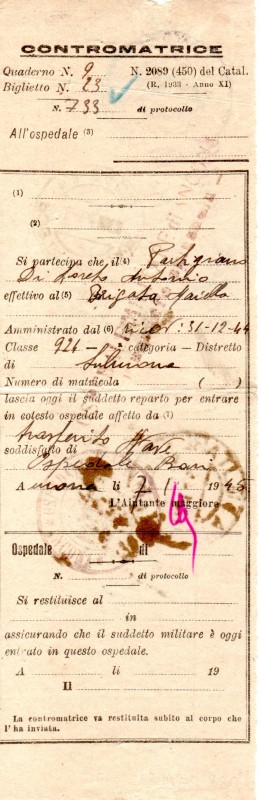 CONTROMATRICE
Quaderno N. 9 N. 2089 (450) del Catal.
Biglietto N. 23 (R. 1933 - Anno XI)
N. 733 di protocollo
All'ospedale (3)
(1)
(2)
Si partecipa che il (4) Partigiano
Di Loreto Antonio
effettivo al (5) Brigata Maiella
Amministrato dal (6) ricov. 31-12-44
Classe 921 - categoria - Distretto
di Sulmona
Numero di matricola ( )
lascia oggi il suddetto reparto per entrare
in cotesto ospedale affetto da (7)
trasferito
soddisfatto di
Ospedale Bari
A li 7 1 1945
L'Aiutante maggiore
Ospedale di
N. di protocollo
Si restituisce al
in
assicurando che il suddetto militare è oggi
entrato in questo ospedale.
A li 19
Il
La contromatrice va restituita subito al corpo che
l'ha inviata.